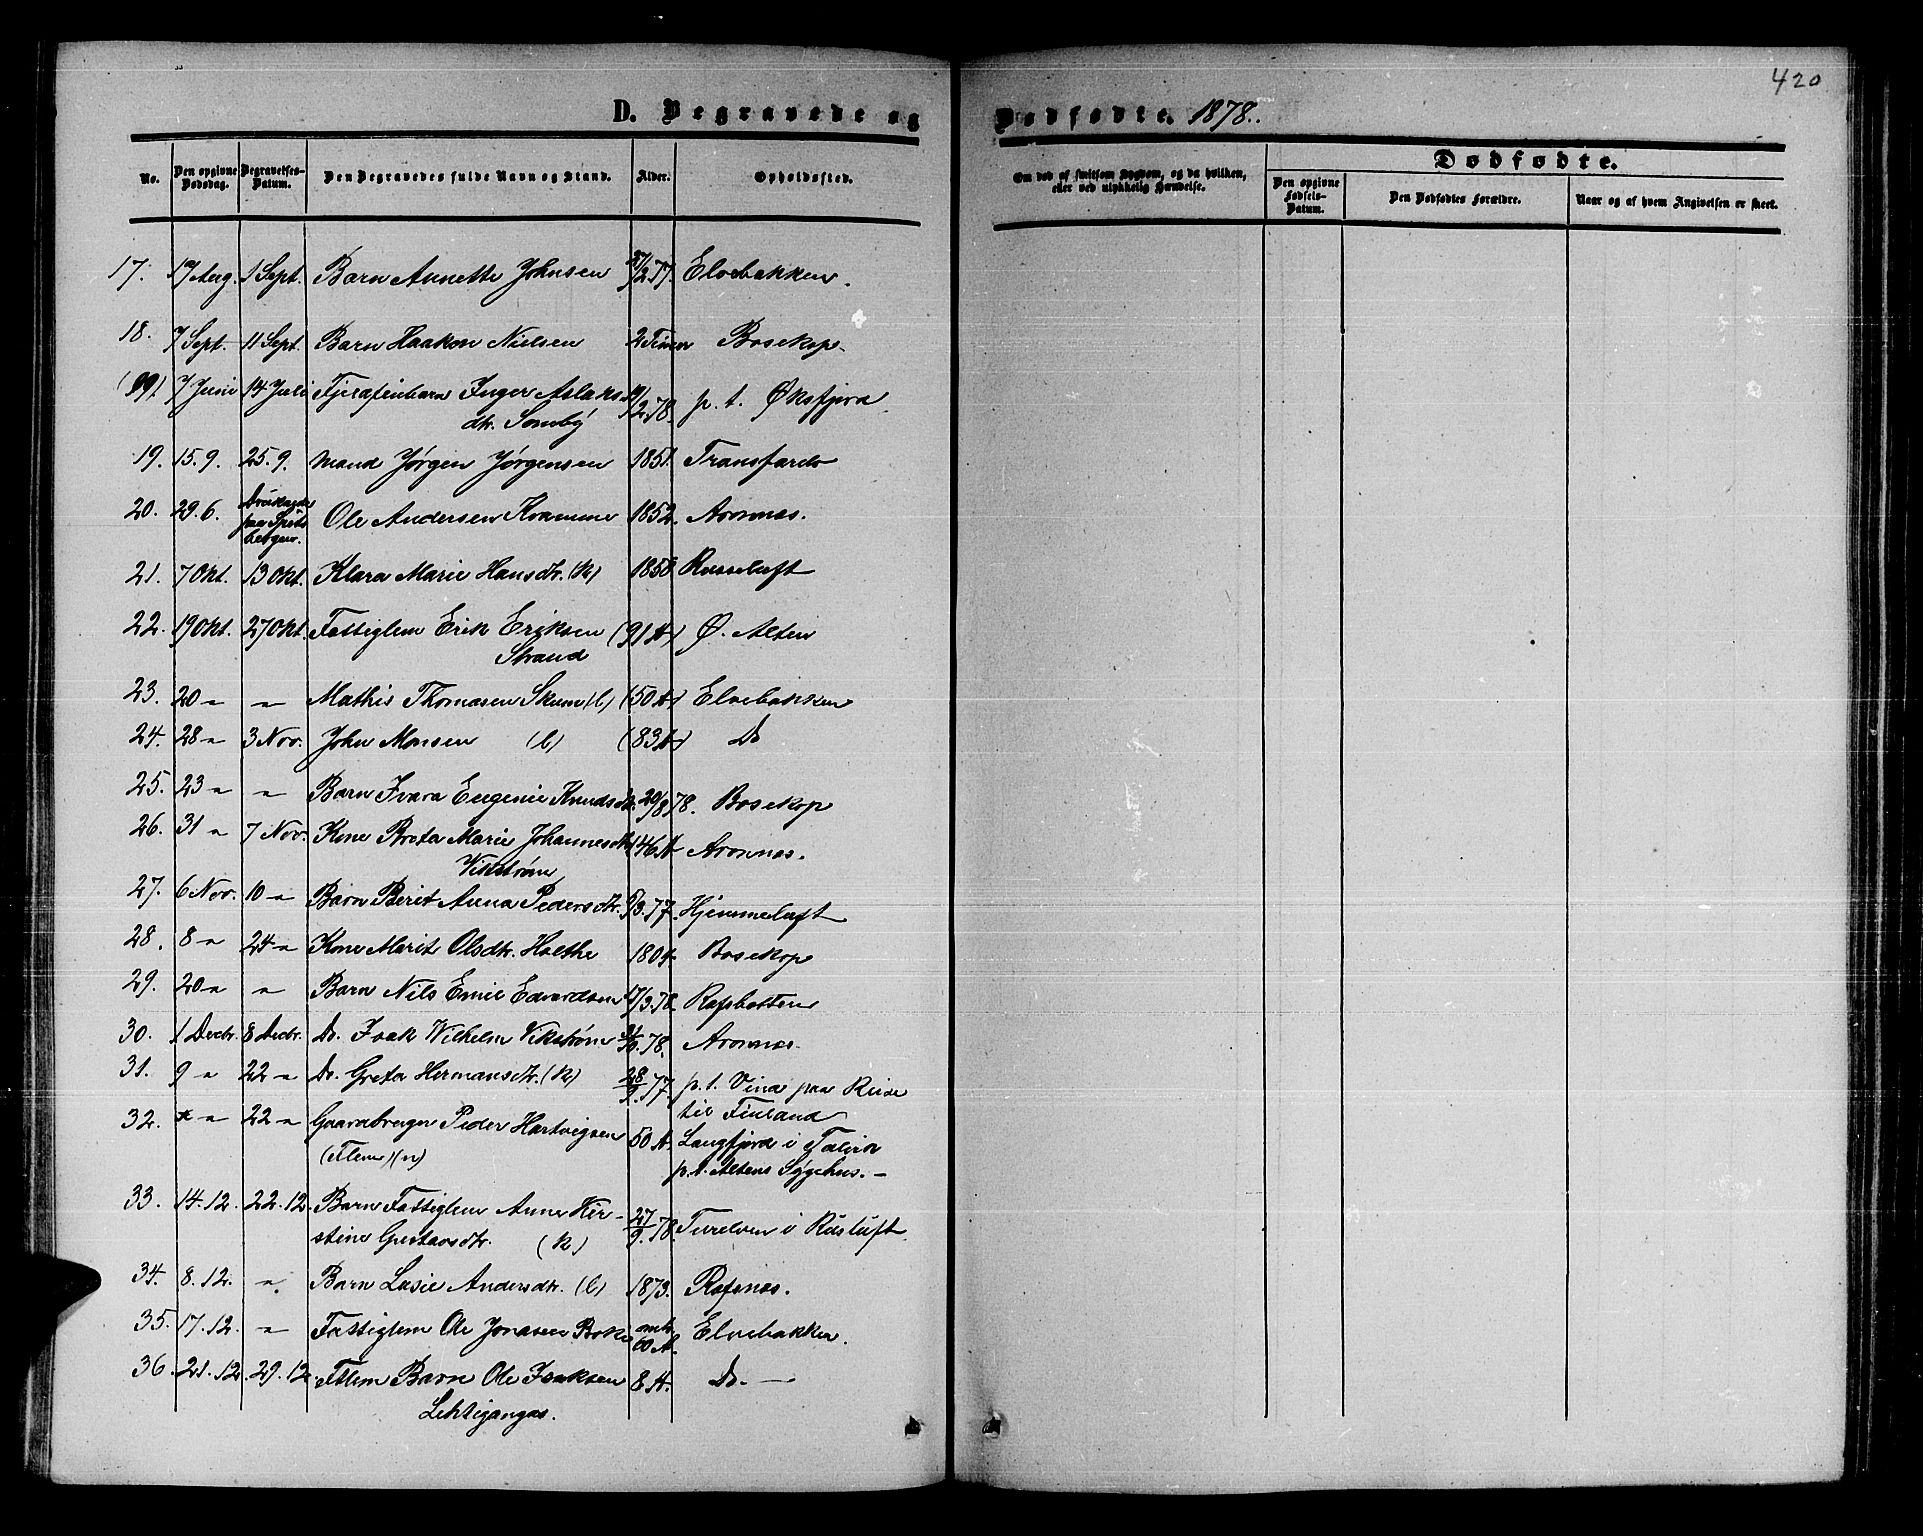 420
D. Begravede og Dødfødte. 1878.
No. Den opgivne Dødsdag. Begravelses-Datum. Den Begravedes fulde Navn og Stand. Alder. Opholdssted. Om død af smitsom Sygdom, og da hvilken, eller ved ulykkelig Hændelse.
Dødfødte.
Den opgivne Fødsels-Datum. Den Dødfødtes Forældre. Naar og af hvem Angivelsen er skeet.
17. 17 Aug. 1 Sept. Barn Annette Johnsen /2.77. Elvebakken.
18. 7 Sept. 11 Sept. Barn Haakon Nielsen 2 Timer Bosekop
7 Juni 14 Juli Inger Aslaks
dtr. Somby /2.78. p. t. Øksfjord
19. 15.9. 25.9. Mand Jørgen Jørgensen 1851. Transfarelv
20. 29.6. Druknede
paa Spits
bergen. Ole Andersen Kvamme 1852. Aronnæs.
21. 7 Okt. 13 Okt. Klara Marie Hansdtr. (k) 1850 Russeluft
22. 19 Okt. 27 Okt. Fattiglem Erik Eriksen (91 A) Ø. Alten
Strand
23. 20 " " Mathis Thomasen Skum (l) (50 A) Elvebakken
24. 28 " 3 Nov. John Monsen (l) (83 A) Do
25. 23 " " Barn Ivara Eugenie Knudsdtr. 20/8 78. Bosekop
26. 31 " 7 Nov. Kone Breta Marie Johannesdtr 46 A Aronnæs.
Vikstrøm
27. 6 Nov. 10 " Barn Berit Anna Pedersdtr. /3.77. Hjemmeluft
28. 8 " 24 " Kone Marit Olsdtr. Holthe 1804. Bosekop
29. 20 " " Barn Nils Emil Edvardsen 17/3.78. Rafsbotten
30. 1 Decbr. 8 Decbr. Do. Isak Wilhelm Vikstrøm /10.78. Aronnæs
31. 9 " 22 " Do. Greta Hermansdtr. (k) 28/9.77. p. t. Vina paa Reise
til Finland
32. " 22 " Gaardbruger Peder Hartvigsen 50 A. Langfjord i Talvik
(Flem) (n) p. t. Altens Sygehus. -
33. 14.12. 22.12. Barn Fattiglem Anne Kir-
stine Gustavsdtr. (k) 27/9.78. Turelven i Rusluft
34. 8.12. " Barn Lasie Andersdtr. (l) 1873. Rafsnæs.
35. 17.12. " Fattiglem Ole Jonasen Bokn omtr.
60 A. Elvebakken.
36. 21.12. 29.12. Ftlem Barn Ole Isaksen 8 A. Do. -
Lehtigangas.